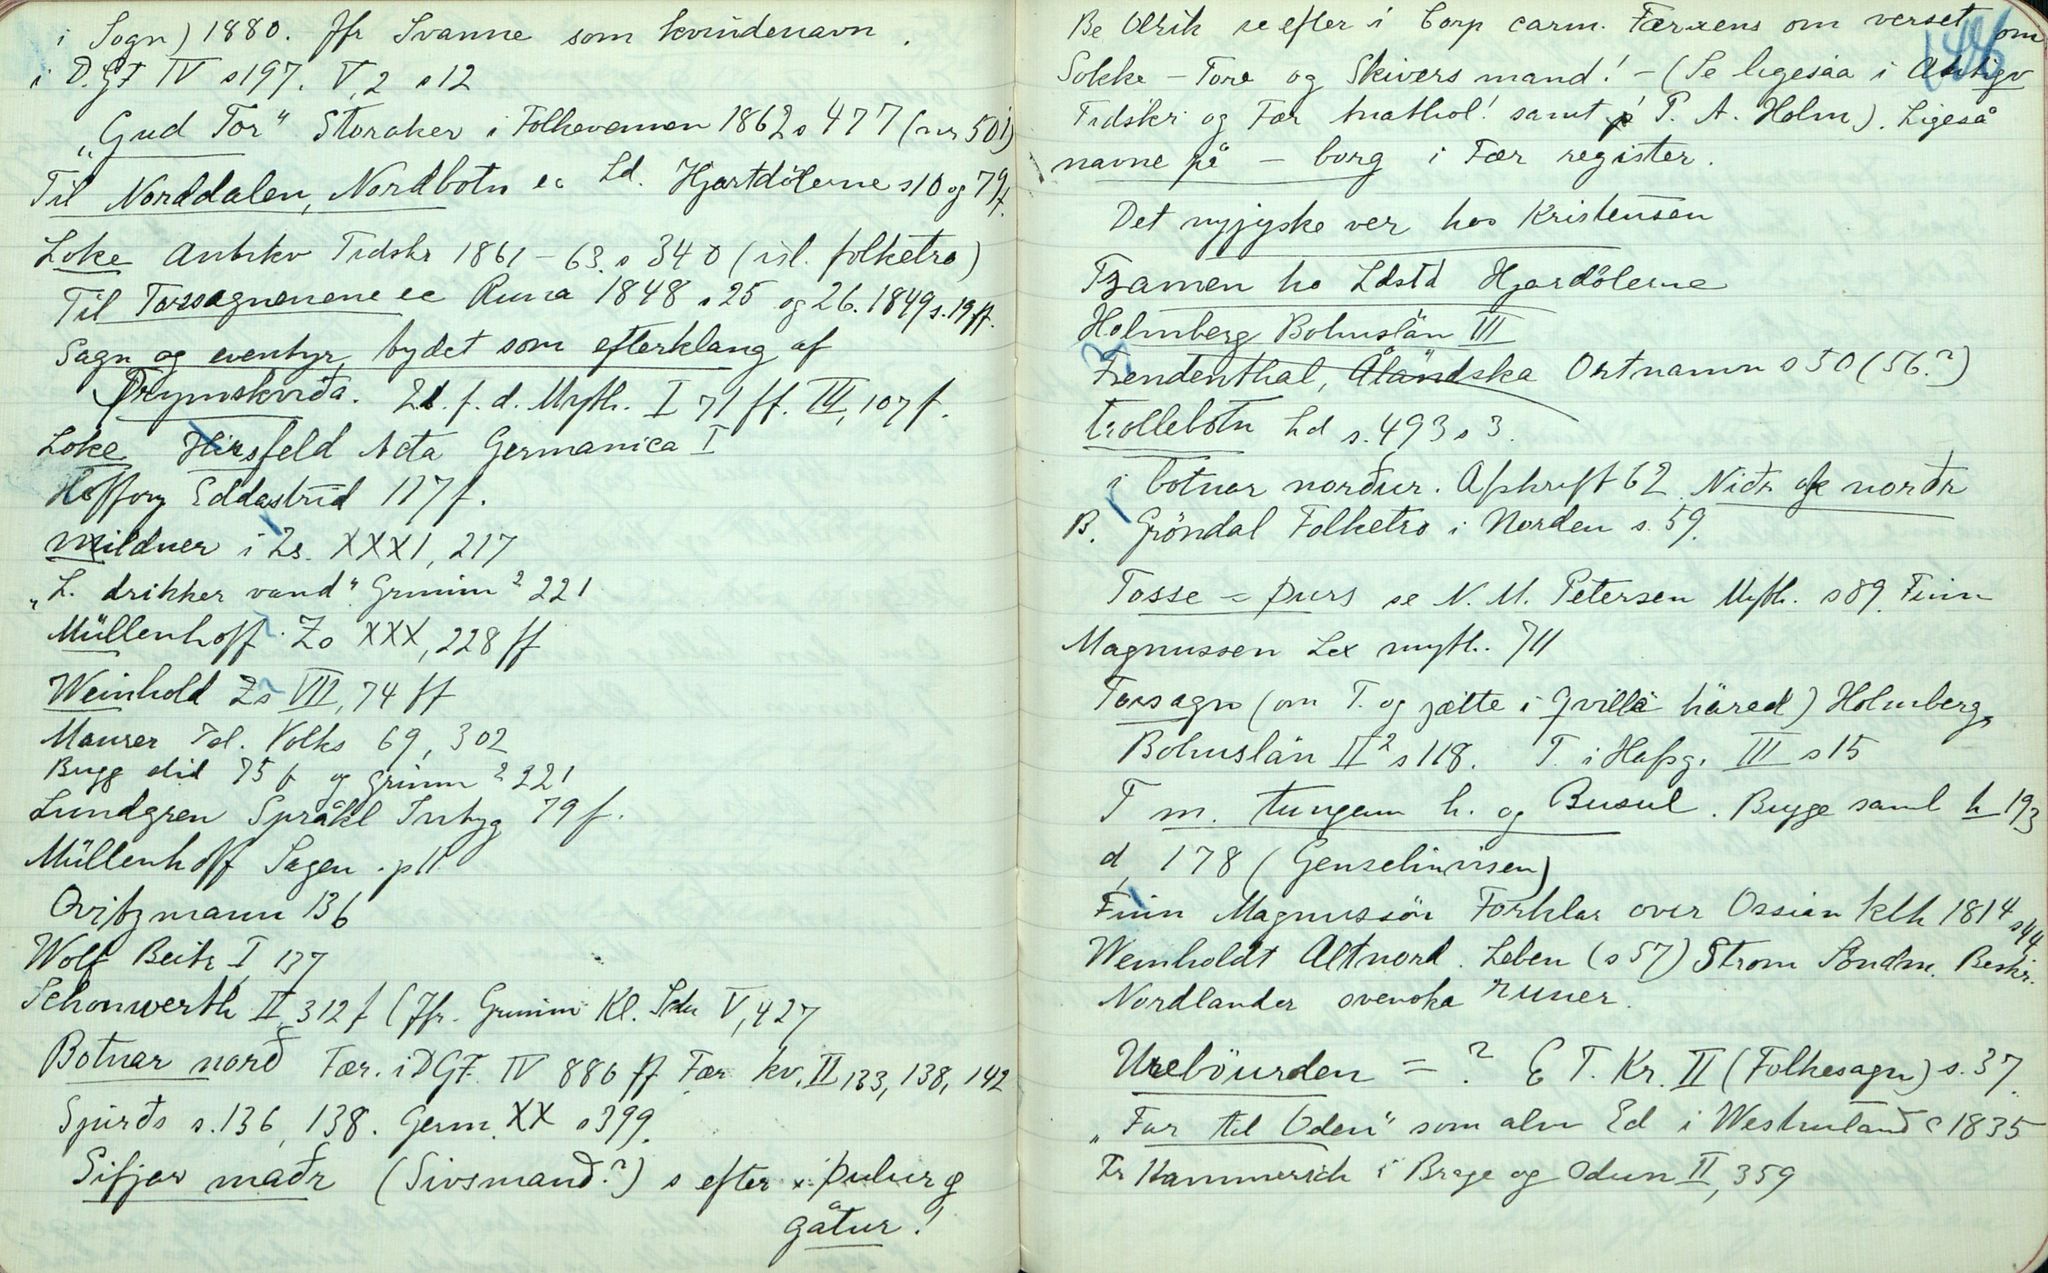 i Sogn) 1880. Jfr Svanne som kvindenavn.
i D.G.F IV s 197. V, 2 s 12
"Gud Tor" Storaker i Folkevennen 1862 s 477 (nr 501)
Til Norddalen, Nordbotn ec Ld. Hjartdölerne s 10 og 79 f.
Loke Antikv Tidskr 1861-63. s 340 (isl. folketro)
Til Torsagnenene ec Runa 1848 s 25 og 26. 1849 s. 19 ff.
Sagn og eventyr, tydet som efterklang af
Þrymskviða. Zs. f. d. Myth. I 71 ff. III, 107 f.
Loke Hirsfeld Acta Germanica I
Hoffory Eddastud 117 f.
Mildner i Zs. XXXI, 217
"L. drikker vand". Grimm 2 221
Müllenhoff. Zs XXX, 228 ff
Weinhold Zs VII, 74 ff
Maurer Isl. Volks 69, 302
Bugg stud 75 f og Grimm 2 221
Lundgren Språkl Intyg 79 f.
Müllenhoff Sagen. p 11.
Qvitzmann 136
Wolf Beitr I 137
Schonwerth II 312 f (Jfr. Grimm Kl. Schr V, 427
Botnar norð Fær. i DGF. IV 886 ff Fær kv. II 133, 138, 142
Sjurðs s. 136, 138. Germ. XX s 399.
Sifjar maðr (Sivsmand?) s efter þulur g
gåtur!
Be Olrik se efter i Corp carm. Færoens om verset om
Sokke - Tore og Skivers mand! - (Se ligesaa i Antiqv
Tidskr og Fær anathol! samt P. A. Holm). Ligeså
navne på - borg i Fær register.
Det nyjyske ver hos Kristensen
Tramen hs Ldstd Hjardölerne
Holmberg Bohuslän III
Freudenthal, Åländska Ortnamn s 50 (56.?)
trollebotn Ld s. 493 s 3.
i botnar norður. Afskrift 62. Niðr ok norðr
B. Gröndal Folketro i Norden s. 59.
Tosse = þurs se N. M. Petersen Myth. s 89. Finn
Magnussen Lex myth. 711
Torsagn (om T. og jætte i Qvilla härad) Holmberg,
Bohuslän II 2 s 118. T. i Hafsg. III s 15
T m. tungum h. og Busul. Bugge saml h 193
d, 178 (Genselinvisen)
Finn Magnussön Forklar over Ossian kbh 1814 s 44.
Weinholdt Altnord. Leben (s 57) Strom Söndm. Beskr.
Nordlander svenska runer.
Ureböurden = ? E T. Kr. II (Folkesagn) s. 37.
"Far til Oden" som alm Ed i Westmland c 1835
Fr Hammerich i Brage og Idun II, 359